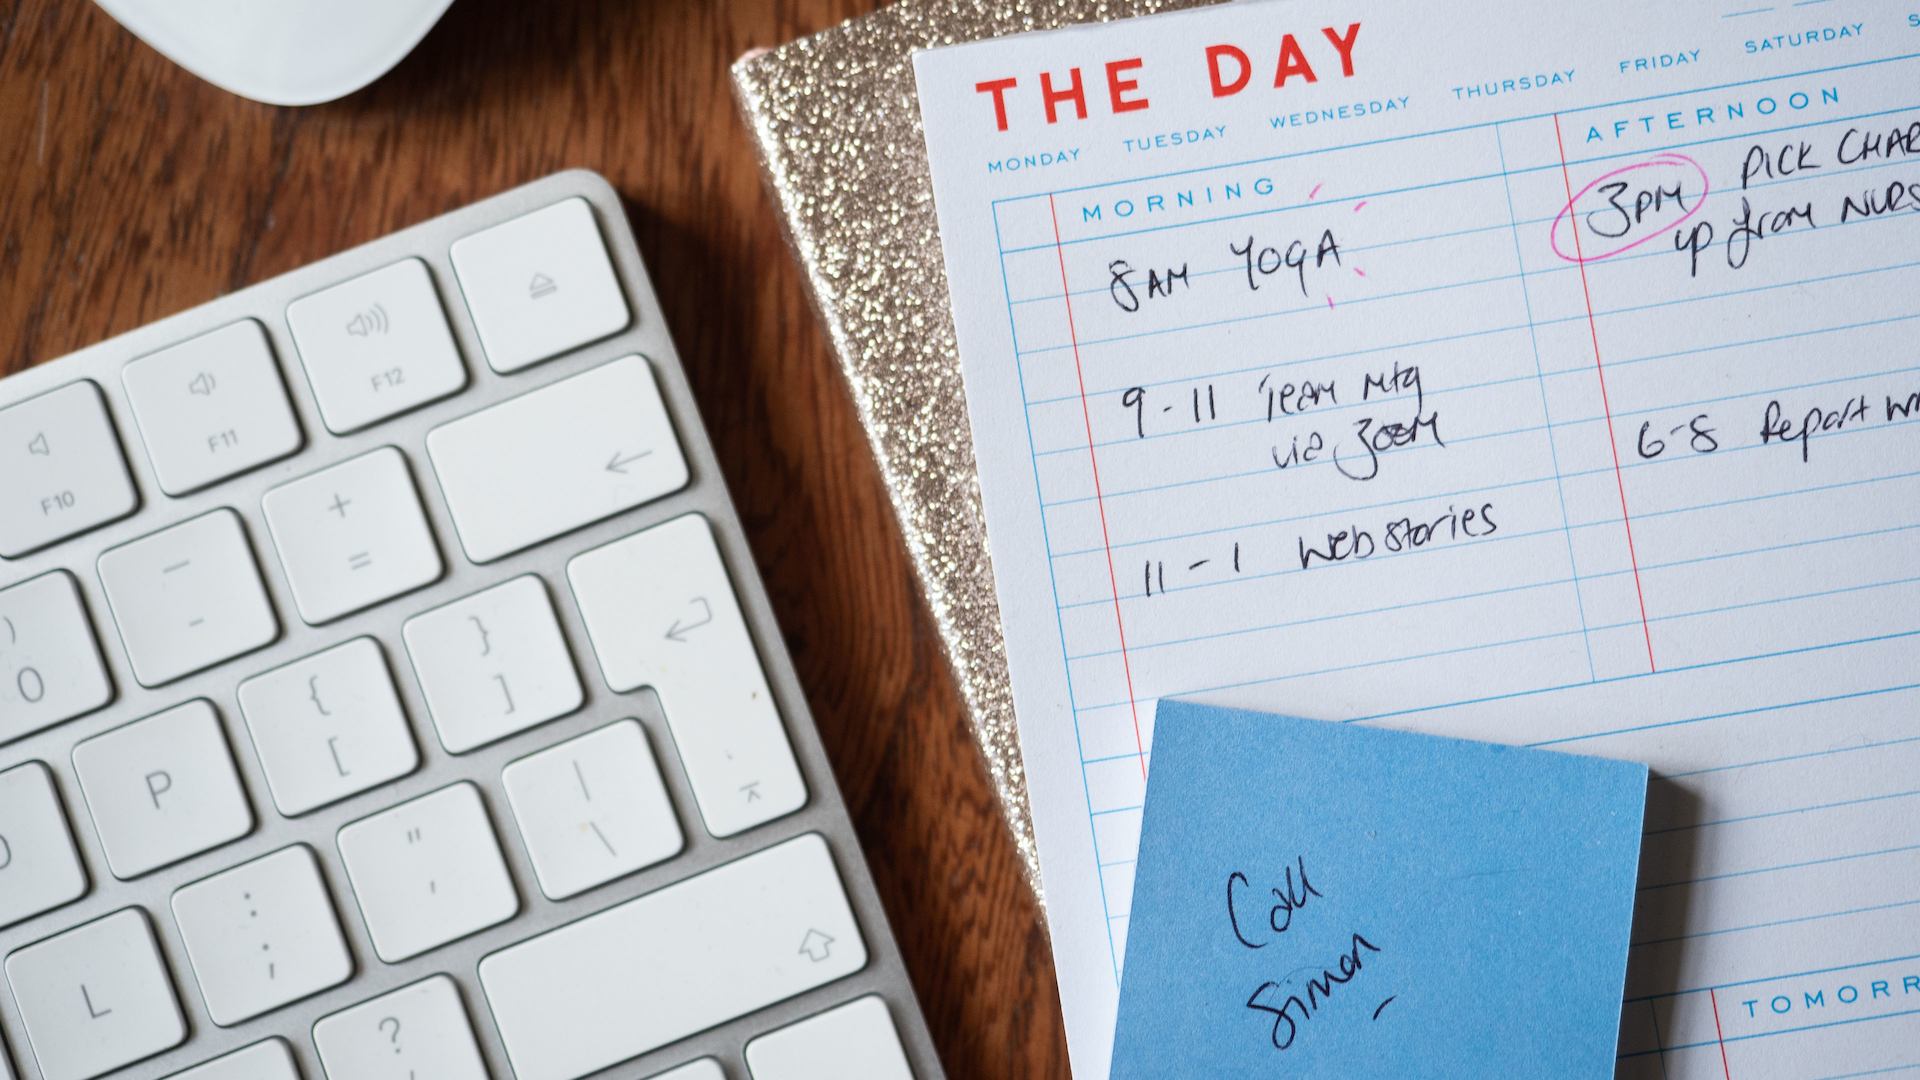 THE DAY
MONDAY TUESDAY WEDNESDAY THURSDAY FRIDAY SATURDAY S
MORNING
8AM YOGA
9-11 Team Mtg
via Zoom
11-1 Web stories
AFTERNOON
3PM PICK CHAR
up from NURS
6-8 Report wr
Call
Simon
TOMORR
F10
F11
F12
+
=
—
-
)
0
P
{
[
}
]
|
\
"
'
L
:
;
?
/